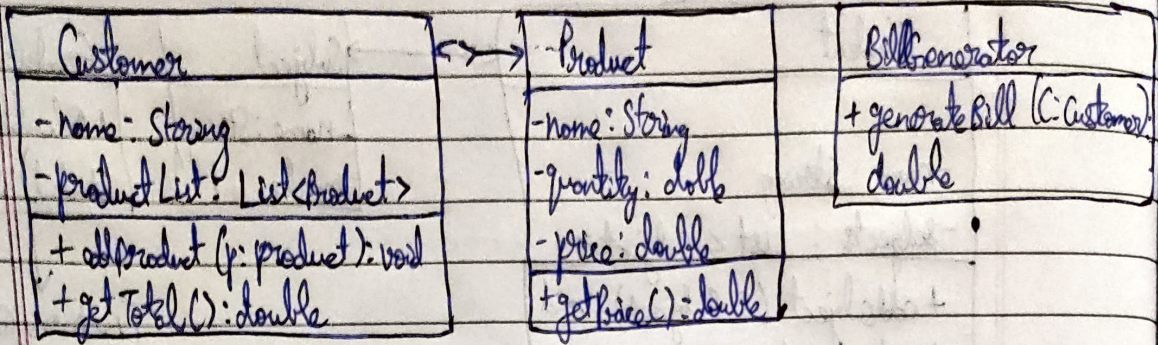 Customer
- name: String
- product List: List<Product>
+ addproduct (p: product): void
+ get Total(): double
- Product
- name: String
- quantity: doble
- price: double
+ getPrice(): double
BillGenerator
+ generate Bill (C: Customer):
double